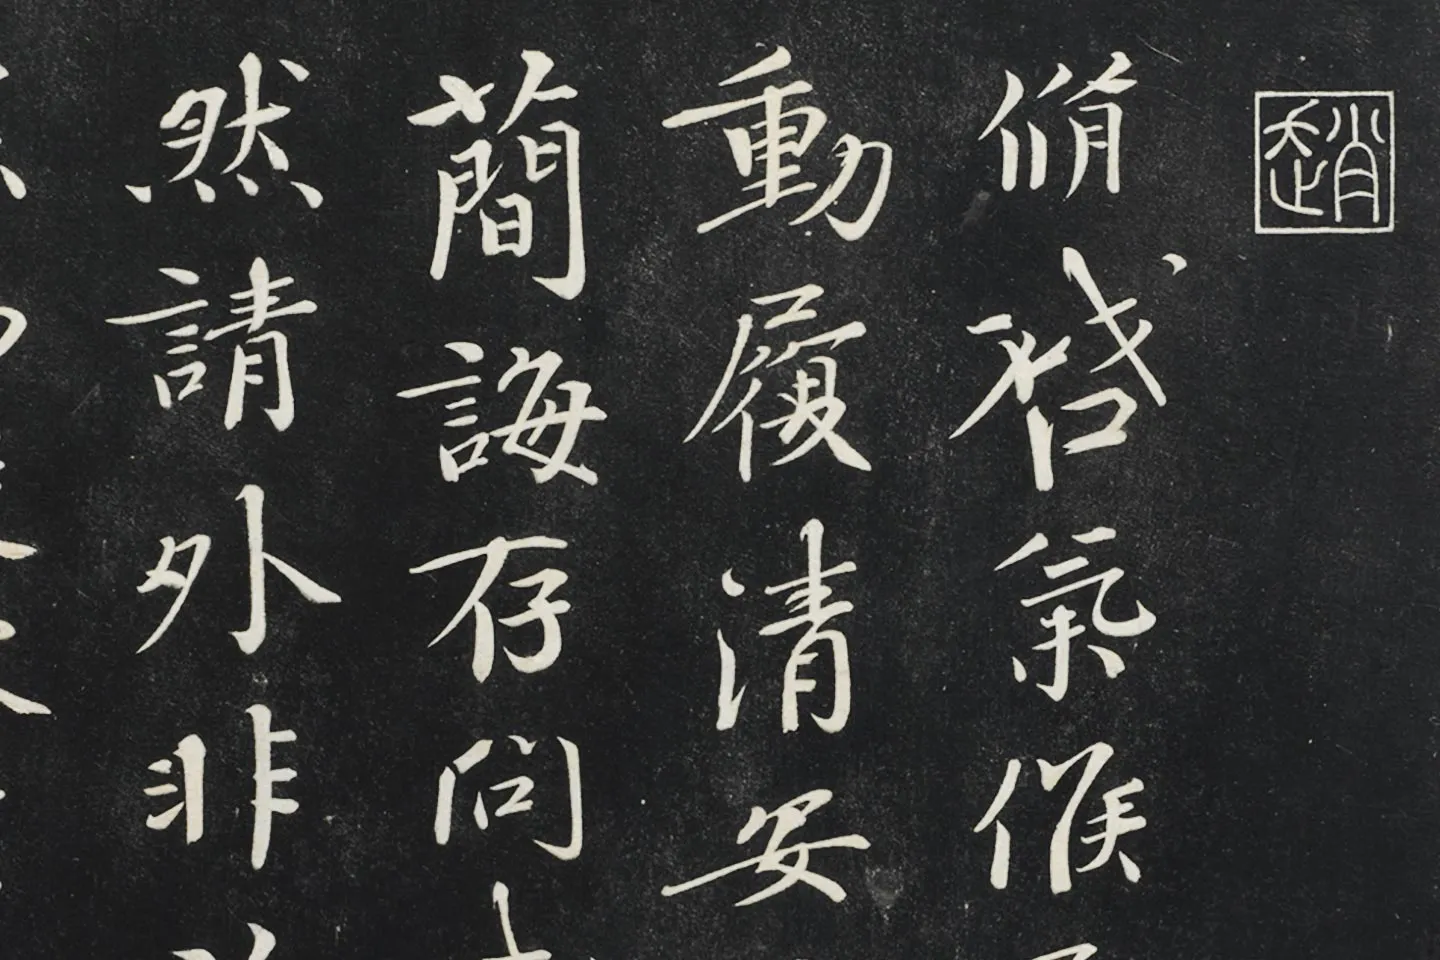 趙
脩啓氣候
動履清安
蕳誨存問
然請外非